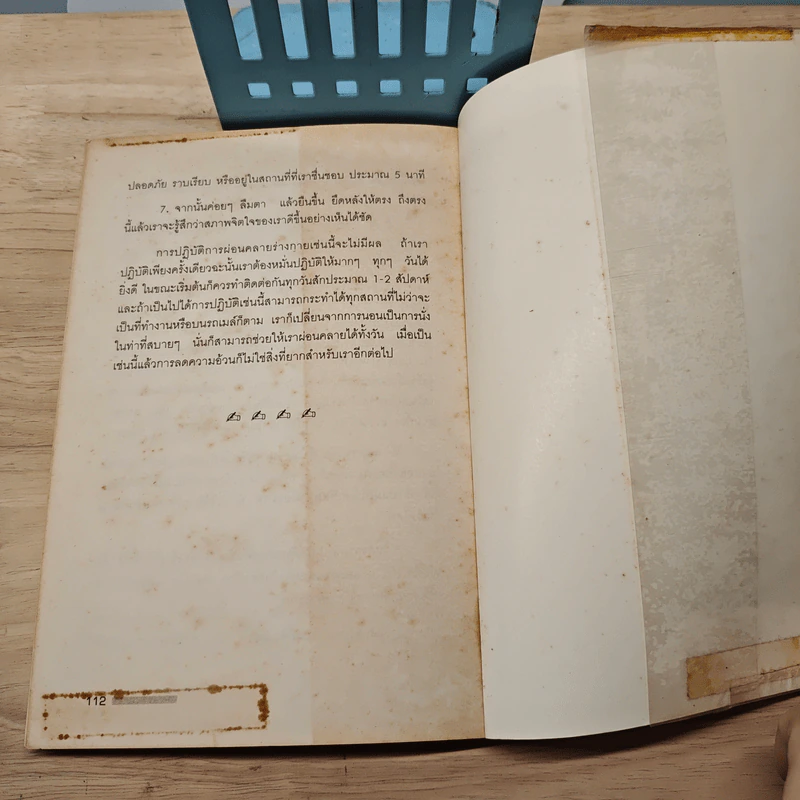 ปลอดภัย รวบเรียบ หรืออยู่ในสถานที่ที่เราชื่นชอบ ประมาณ 5 นาที
7. จากนั้นค่อยๆ ลืมตา แล้วยืนขึ้น ยืดหลังให้ตรง ถึงตรง
นี้แล้วเราจะรู้สึกว่าสภาพจิตใจของเราดีขึ้นอย่างเห็นได้ชัด
การปฏิบัติการผ่อนคลายร่างกายเช่นนี้จะไม่มีผล ถ้าเรา
ปฏิบัติเพียงครั้งเดียวฉะนั้นเราต้องหมั่นปฏิบัติให้มากๆ ทุกๆ วันได้
ยิ่งดี ในขณะเริ่มต้นก็ควรทำติดต่อกันทุกวันสักประมาณ 1-2 สัปดาห์
และถ้าเป็นไปได้การปฏิบัติเช่นนี้สามารถกระทำได้ทุกสถานที่ไม่ว่าจะ
เป็นที่ทำงานหรือบนรถเมล์ก็ตาม เราก็เปลี่ยนจากการนอนเป็นการนั่ง
ในท่าที่สบายๆ นั่นก็สามารถช่วยให้เราผ่อนคลายได้ทั้งวัน เมื่อเป็น
เช่นนี้แล้วการลดความอ้วนก็ไม่ใช่สิ่งที่ยากสำหรับเราอีกต่อไป
112